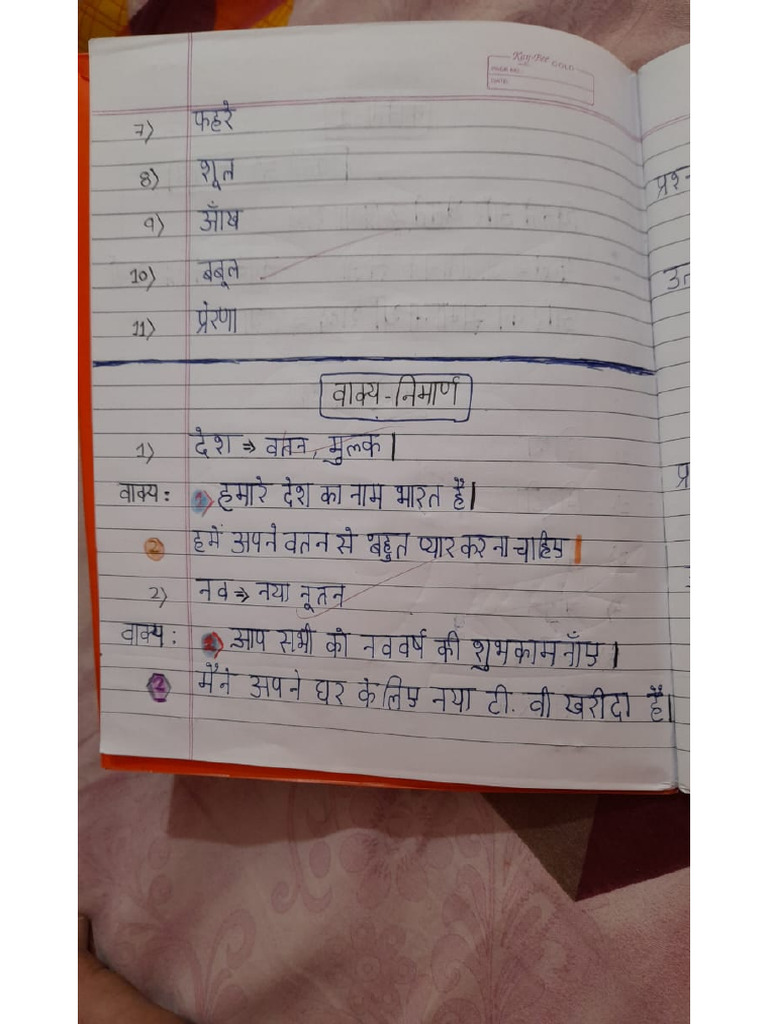 Key-Por GOLD
PAGE NO.:
DATE:
7) फहरे
8) शूल
9) आँख
10) बबूल
11) प्रेरणा
वाक्य-निमार्ण
1) देश ⇒ वतन, मुलक।
वाक्य: 1) हमारे देश का नाम भारत है।
2 हमें अपने वतन से बहुत प्यार करना चाहिए।
2) नव ⇒ नया नूतन
वाक्य: 1) आप सभी को नववर्ष की शुभकामनाँए।
2 मैंने अपने घर के लिए नया टी. वी खरीदा है।
प्रश्-